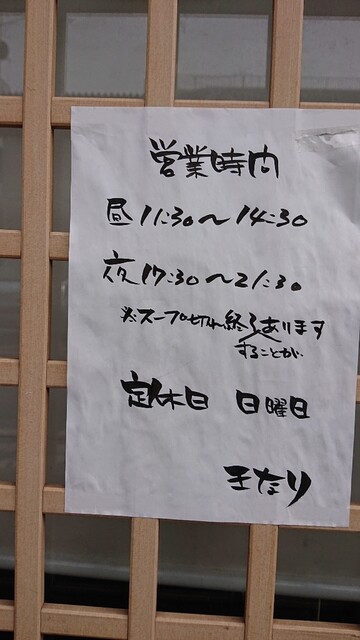 営業時間
昼 11:30〜14:30
夜 17:30〜21:30
※スープ切れ終了あります
することが
定休日 日曜日
まなり